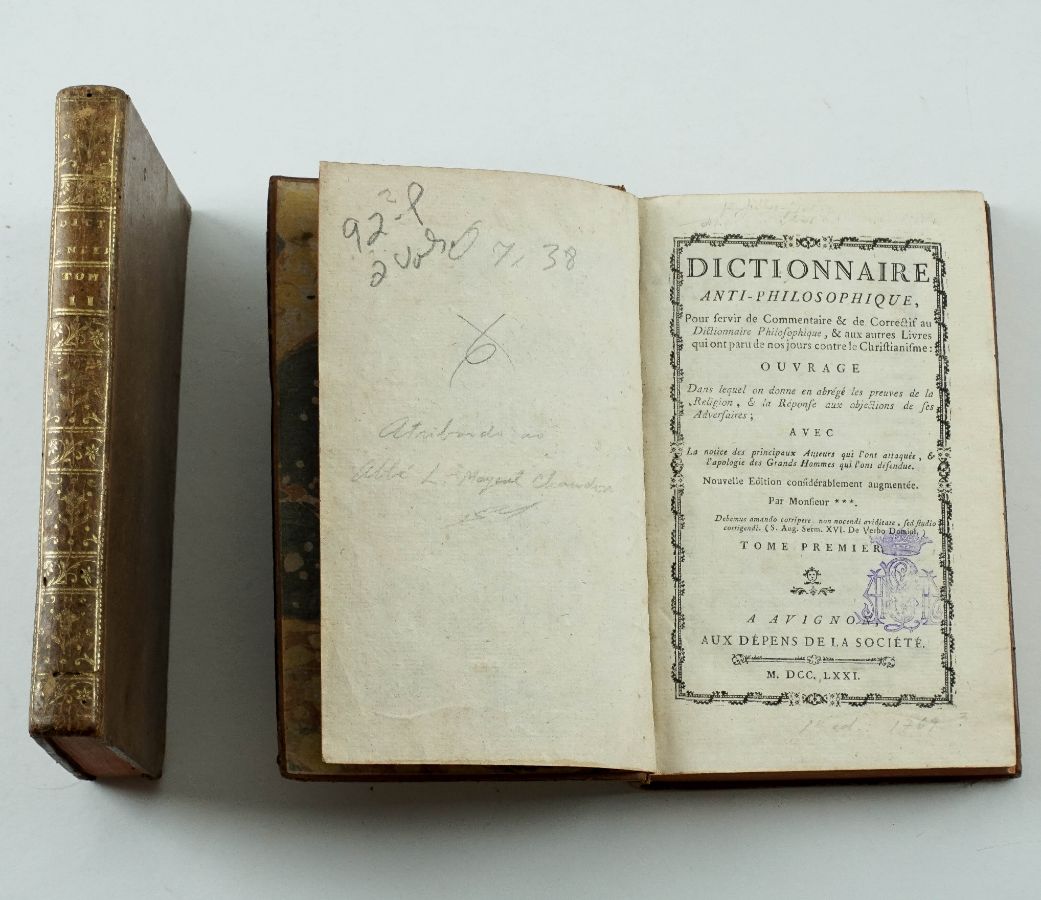 TOM
II
2 vols
7, 38
Atribuido ao
Abbé L. Mayeul Chaudon
DICTIONNAIRE
ANTI-PHILOSOPHIQUE,
Pour ſervir de Commentaire & de Correctif au
Dictionnaire Philoſophique, & aux autres Livres
qui ont paru de nos jours contre le Chriſtianiſme :
OUVRAGE
Dans lequel on donne en abrégé les preuves de la
Religion, & la Réponſe aux objections de ſes
Adverſaires ;
AVEC
La notice des principaux Auteurs qui l'ont attaquée, &
l'apologie des Grands Hommes qui l'ont défendue.
Nouvelle Edition conſidérablement augmentée.
Par Monſieur ***.
Debemus amando corripere, non nocendi aviditate, ſed ſtudio
corrigendi. (S. Aug. Serm. XVI. De Verbo Domini.)
TOME PREMIER
A AVIGNON,
AUX DÉPENS DE LA SOCIÉTÉ.
M. DCC. LXXI.
1ª ed. 1767